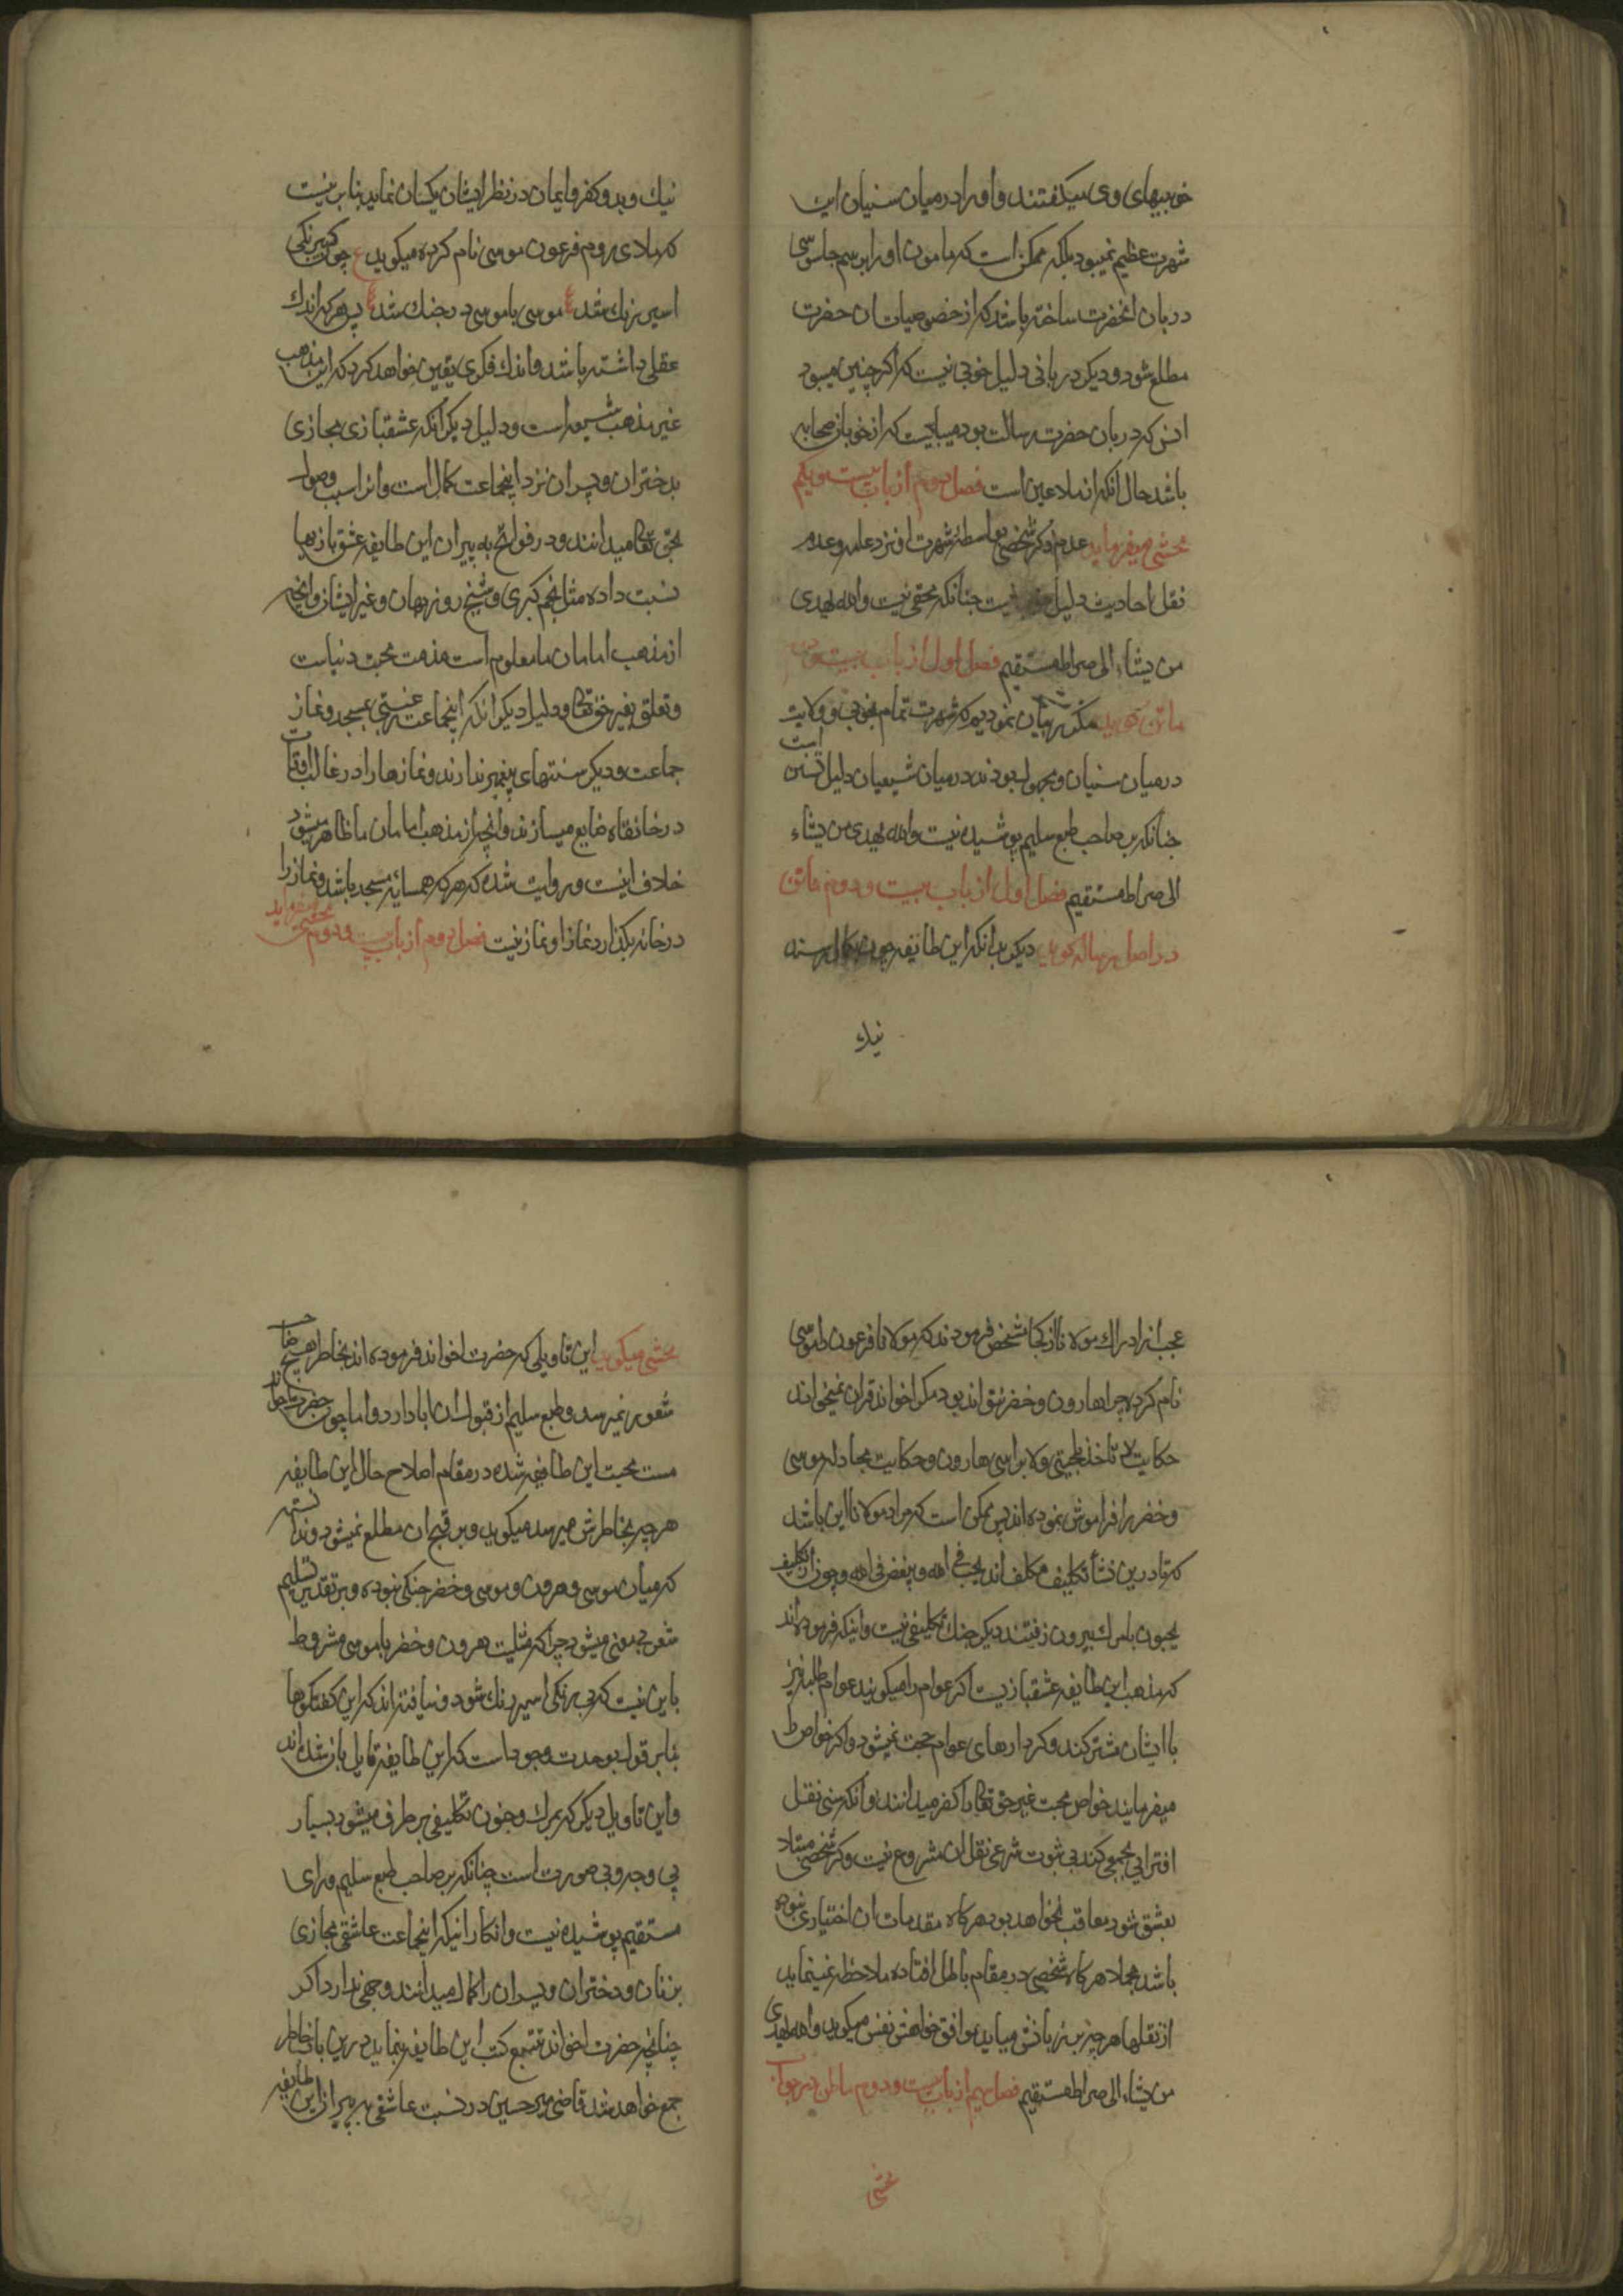 خوبیهای وی میکفتند و او را در میان سنیان این
شهرت عظیم نمیبود بلکه ممکن است که مامون او را برسم جاسوسی
دربان انحضرت ساخته باشد که از خصوصیات ان حضرت
مطلع شود و دیکر دربانی دلیل خوبی نیست که اکر چنین میبود
انس که دربان حضرت رسالت بود میبایست که از خوبان صحابه
باشد حال انکه از ملاعین است فصل دوم از باب بیست و یکم
محشی میفرماید عدم ذکر شخصی بواسطه شهرت او نزد عامه و عدم
نقل احادیث دلیل نیست چنانکه مخفی نیست والله یهدی
من یشاء الی صراط مستقیم فصل اول از باب بیست و
ماتن کوید مکرر بیان نمودیم که شهرت تمام بخوبی و ولایت
درمیان سنیان و مجهول بودن در میان شیعیان دلیل تسنن است
چنانکه بر صاحب طبع سلیم پوشیده نیست والله یهدی من یشاء
الی صراط مستقیم فصل اول از باب بیست و دوم ماتن
در اصل رساله کوید دیکر بدانکه این طایفه چون بکمال رسند
نیک
نیك و بد و کفر و ایمان در نظر ایشان یکسان نماید بنابرینست
که ملای روم فرعون موسی نام کرده میکوید ع چونکه بیرنکی
اسیر رنك شد ع موسی با موسی در جنك شد ع پس هر که اندك
عقلی داشته باشد و اندك فکری یقین خواهد کرد که این مذهب
غیر مذهب شیعه است و دلیل دیکر انکه عشقبازی مجازی
بدختران و پسران نزد اینجماعت کمال است و انرا سبب وصول
بحق تعالی میدانند و در فواتح به پیران این طایفه عشق بازیها
نسبت داده مثل نجم کبری و شیخ روزبهان و غیر ایشان و انچه
از مذهب امامان ما معلوم است مذمت محبت دنیاست
و تعلق بغیر حق تعالی و دلیل دیکر انکه اینجماعت رغبتی بمسجد و نماز
جماعت و دیکر سنتهای پیغمبر ندارند و نمازها را در غالب اوقات
در خانقاه ضایع میسازند و انچه از مذهب امامان ما ظاهر میشود
خلاف اینست و روایت شده که هر که همسایه مسجد باشد و نماز را
در خانه بکذارد نماز او نماز نیست فصل دوم از باب بیست و دوم محشی میفرماید
عجب از ادراك مولانا از کجا مشخص فرمودند که مولانا فرعون را موسی
نام کرده چرا هارون و خضر نتواند بود مکر اخواند قران نمیخواند
حکایت لا تاخذ بلحیتی ولا براسی هارون و حکایت مجادله موسی
و خضر را فراموش نموده اند پس ممکن است که مراد مولانا این باشد
که تا درین نشأ تکلیف مکلف اند بحب فی الله و بغض فی الله و چون از تکلیف
بجنون یا مرك بیرون رفتند دیکر جنك تکلیفی نیست و اینکه فرموده اند
که مذهب این طایفه عشقبازیست اکر عوام را میکویند عوام طلبه نیز
با ایشان شرکتند و کردارهای عوام حجت نمیشود و اکر خواص را
میفرمایند خواص محبت غیر حق تعالی را کفر میدانند و انکه سنی نقل
افترایی بجمعی کند بی ثبوت شرعی نقل ان مشروع نیست و کر شخصی مبتلا
بعشق شود معاقب نخواهد بود هرکاه مقدمات ان اختیاری نبوده
باشد مجملا هرکاه شخصی در مقام باطل افتاده ملاحظه نمینماید
از نقلها هرچیز بر زبانش میاید موافق خواهش نفس میکوید والله یهدی
من یشاء الی صراط مستقیم فصل سیم از باب بیست و دوم ماتن در جواب
محشی
محشی میکوید این تاویلی که حضرت اخواند فرموده اند بخاطر هیچ صاحب
شعور نمیرسد و طبع سلیم از قبول ان ابا دارد و اما چون حضرت اخواند
مست محبت این طایفه شده در مقام اصلاح حال این طایفه
هرچه بخاطرش میرسد میکوید و بر قبح ان مطلع نمیشود و ندانسته
که میان موسی و هرون و موسی و خضر جنکی نبوده و بر تقدیر تسلیم
شعر بی معنی میشود چرا که مثلیت هرون و خضر با موسی مشروط
باین نیست که بی رنکی اسیر رنك شود و نیافته اند که این کفتکوها
بنابر قول بوحدت وجود است که این طایفه قایل بان شده اند
و این تاویل دیکر که بمرك و جنون تکلیفی برطرف میشود بسیار
بی وجه و بی صورت است چنانکه بر صاحب طبع سلیم و رای
مستقیم پوشیده نیست و انکار اینکه اینجماعت عاشقی مجازی
بزنان و دختران و پسران را کمال میدانند وجهی ندارد اکر
چنانچه حضرت اخواند تتبع کتب این طایفه بنماید درین باب خاطر
جمع خواهد شد قاضی میر حسین در نسبت عاشقی به پیران این طایفه